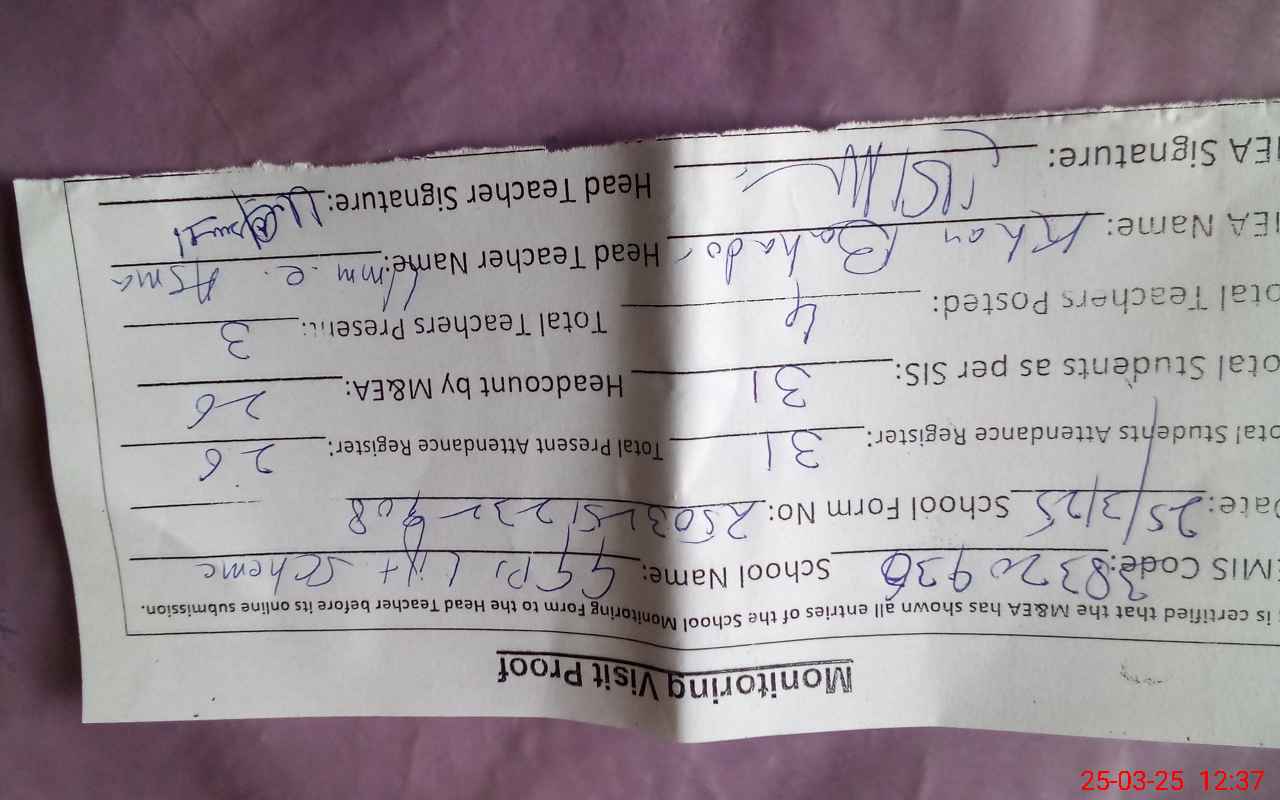 Monitoring Visit Proof
is certified that the M&EA has shown all entries of the School Monitoring Form to the Head Teacher before its online submission.
EMIS Code: 38320936 School Name: GGPS Lift Scheme
Date: 25/3/25 School Form No: 
Total Students Attendance Register: 31 Total Present Attendance Register: 26
Total Students as per SIS: 31 Headcount by M&EA: 26
Total Teachers Posted: 4 Total Teachers Present: 3
MEA Name: Khan Bahador Head Teacher Name: Umm.e. Asma
MEA Signature: Head Teacher Signature:
25-03-25 12:37